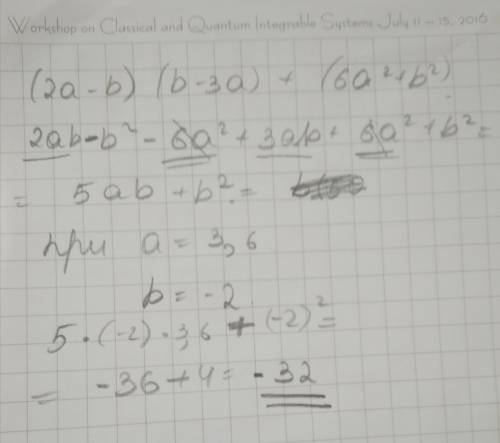 Workshop on Classical and Quantum Integrable Systems July 11 - 15, 2016
(2a - b) (b - 3a) + (6a² + b²)
2ab - b² - 6a² + 3ab + 6a² + b² =
= 5ab + b² =
при a = 3,6
b = -2
5 · (-2) · 3,6 + (-2)² =
= -36 + 4 = -32